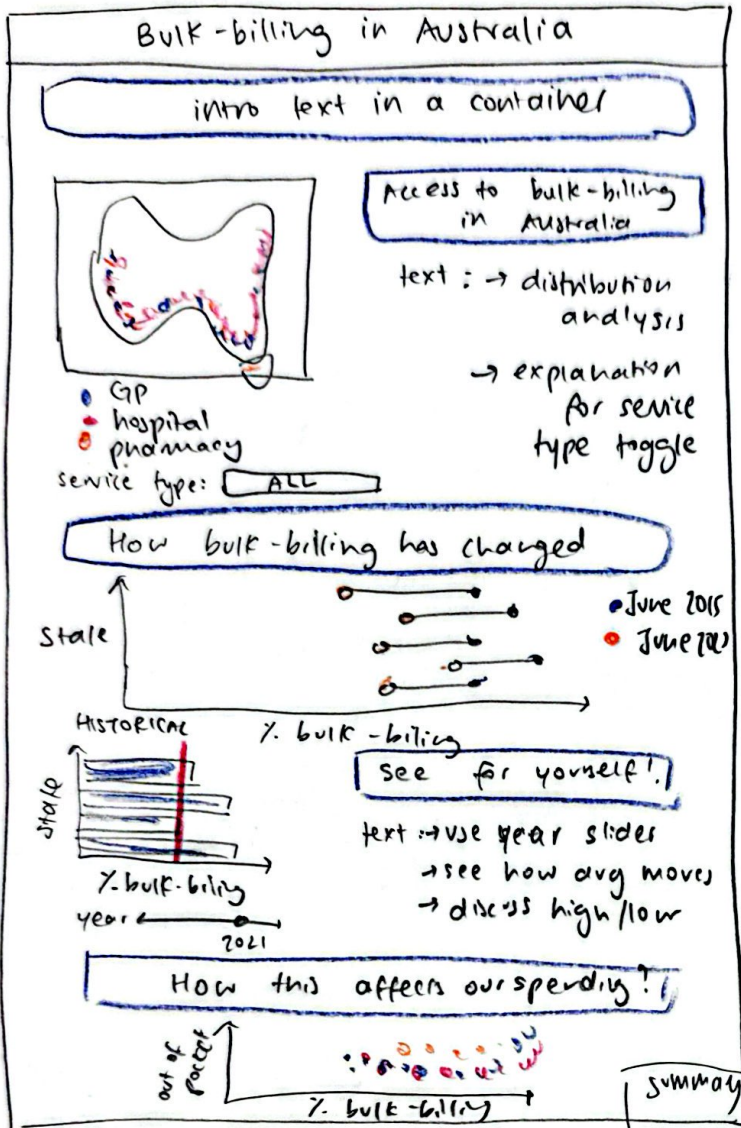 Bulk-billing in Australia
intro text in a container
Access to bulk-billing
in Australia
text : → distribution
analysis
→ explanation
for service
type toggle
GP
hospital
pharmacy
service type: ALL
How bulk-billing has changed
State
June 2015
June
% bulk-biling
HISTORICAL
State
% bulk-biling
year
2021
see for yourself!
text :→ use year slider
→ see how avg moves
→ discuss high/low
How this affects our spending!
out of
pocket
% bulk-billing
summary